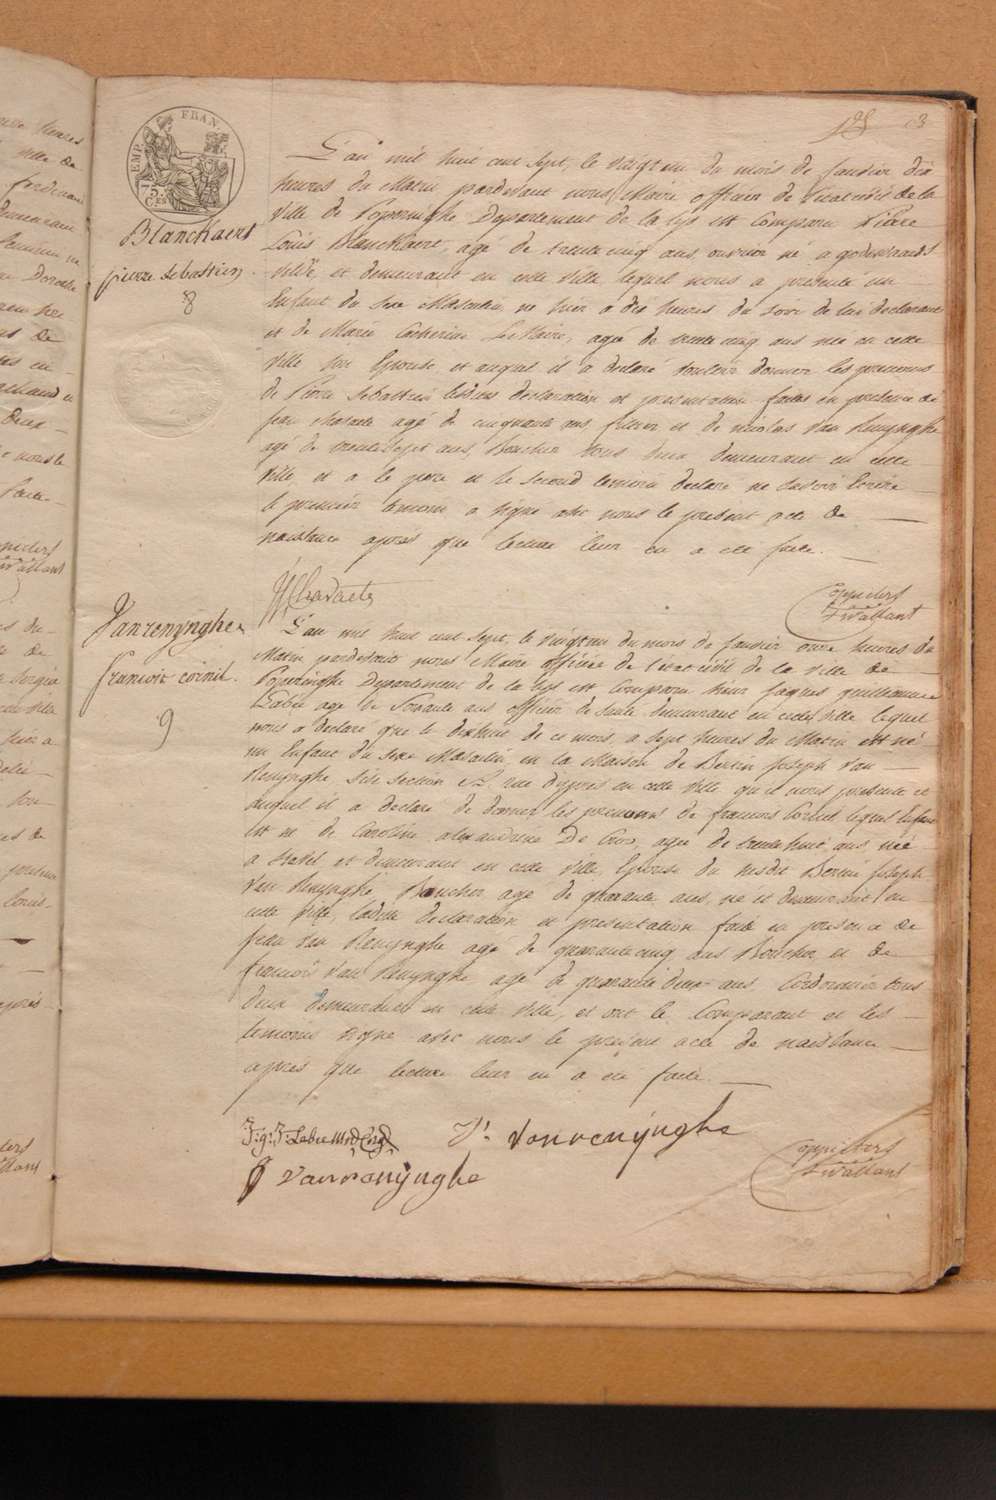 EMP. FRAN.
75
CEN
3
Blanckaert
pierre sebastien
8
L'an mil huit cent sept, le vingt un du mois de Janvier dix
heures du Matin pardevant nous Maire officier de l'Etat civil de la
Ville de Poperinghe Departement de la Lys est Comparu Pierre
Louis Blanckaert, agé de trente cinq ans, ouvrier né a
et demeurant en cette ville lequel nous a presenté un
Enfant du sexe Masculin né hier a dix heures du soir de lui declarant
et de Marie Catherine LeMaire, agée de trente cinq ans née en cette
Ville son Epouse, et auquel il a declaré vouloir donner les prenoms
de Pierre Sebastien lesdites declaration et presentation faites en presence de
jean agé de cinquante ans et de nicolas Van Renynghe
agé de trente sept ans, Boucher tous deux demeurant en cette
Ville, et a le pere et le second temoin declaré ne savoir Ecrire
le premier temoin a signé avec nous le present acte de
naissance apres que lecture leur en a eté faite.
Vanrenynghe
francois cornil.
9
L'an mil huit cent sept, le vingt un du mois de Janvier onze heures du
Matin pardevant nous Maire officier de l'état civil de la ville de
Poperinghe Departement de la Lys est Comparu sieur Jaques guillaume
Labie agé de Soixante ans officier de santé demeurant en cette ville lequel
nous a declaré que le dixhuit de ce mois, a sept heures du Matin est né
un Enfant du sexe Masculin, en la Maison de Bertin Joseph Van
Renynghe, sise section rue d'ypres en cette ville qu'il nous presente et
auquel il a declaré de donner les prenoms de francois Cornil lequel Enfant
est né de Caroline alexandrine De Cros, agée de trente huit ans, née
a Stavel et demeurant en cette ville, Epouse du susdit Bertin Joseph
Van Renynghe Boucher agé de quarante ans, né et demeurant en
cette ville, ladite declaration et presentation faite en presence de
jean Van Renynghe agé de quarante cinq ans Boucher et de
francois Van Renynghe agé de quarante deux ans Cordonnier tous
deux demeurants en cette ville, et ont le Comparant et les
temoins signé avec nous le présent acte de naissance
après que lecture leur en a été faite.
J. Vanrenynghe
Vanrenynghe